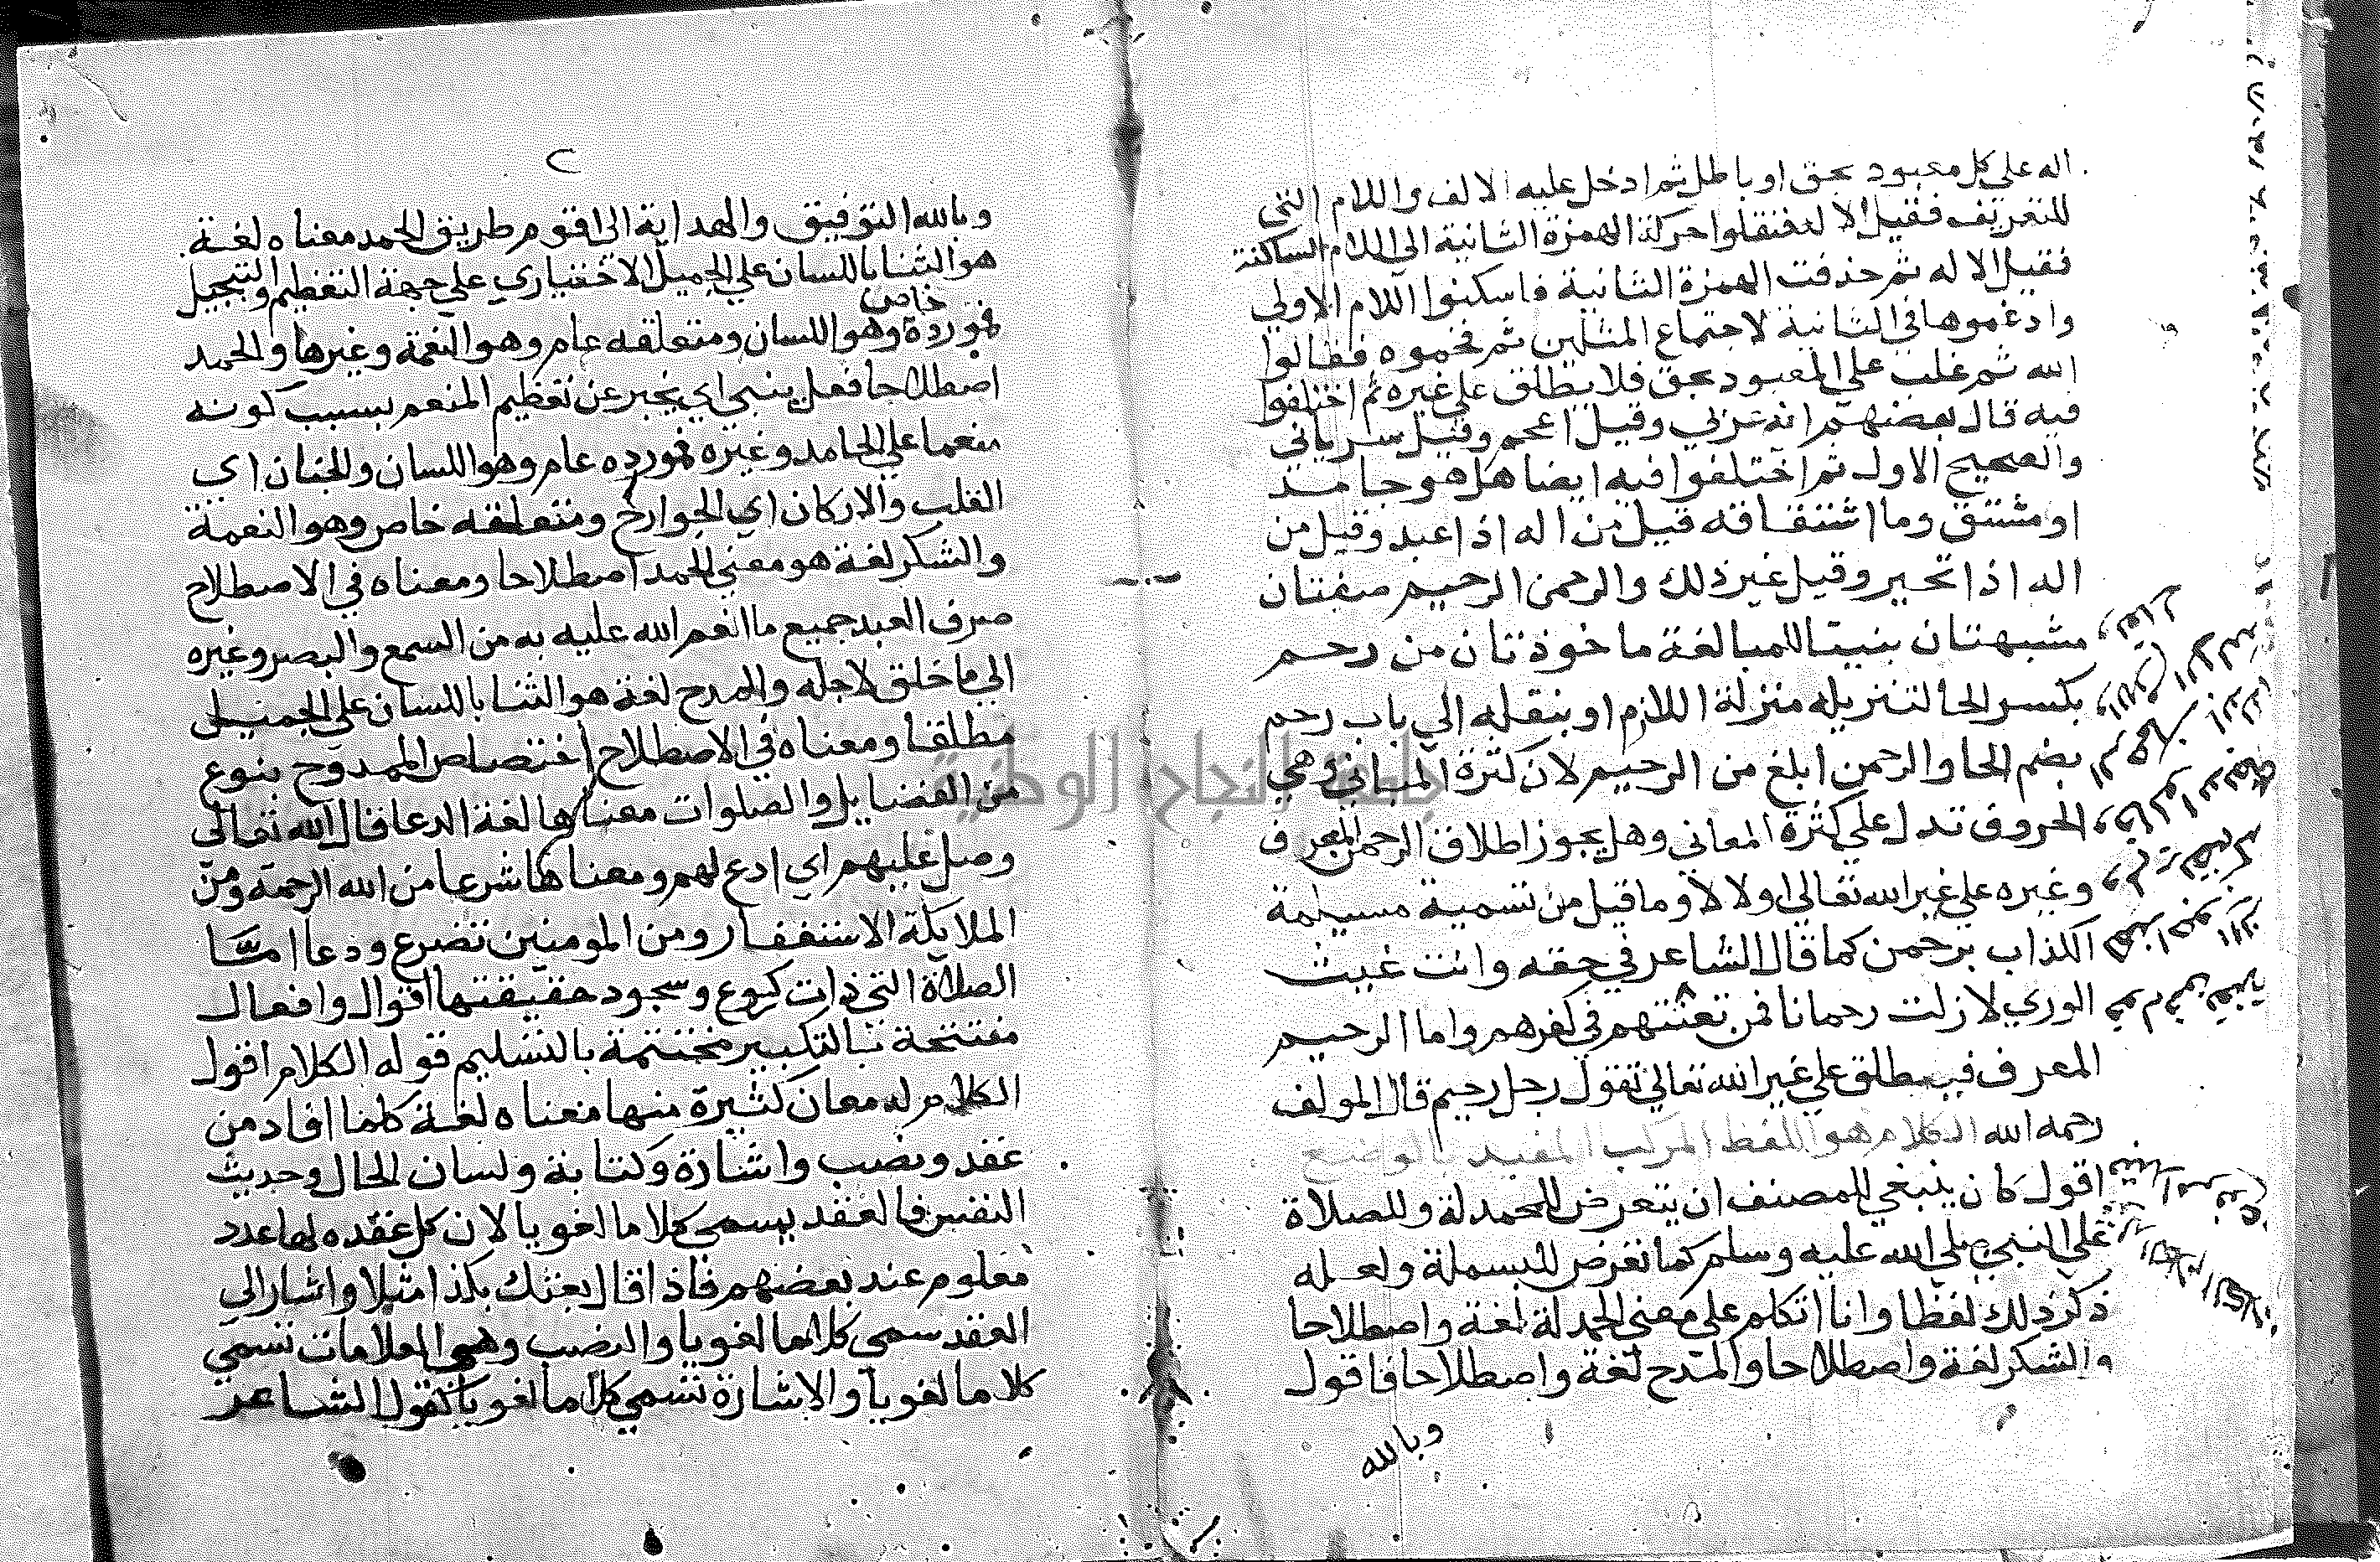 اله على كل معبود بحق او باطل ثم ادخل عليه الالف واللام التي
للتعريف فقيل الاله فنقلوا حركة الهمزة الثانية الى اللام الساكنة
فقيل الاله ثم حذفت الهمزة الثانية فاسكنوا اللام الاولي
وادغموها في الثانية لاجتماع المثلين ثم فخموه فقالوا
الله ثم غلب على المعبود بحق فلا يطلق على غيره ثم اختلفوا
فيه قال بعضهم انه عربي وقيل اعجم وقيل سرياني
والصحيح الاول ثم اختلفوا فيه ايضا هل هو جامد
او مشتق وما اشتقاقه قيل من اله اذا عبد وقيل من
اله اذا تحير وقيل غير ذلك والرحمن الرحيم صفتان
مشبهتان بنيتا للمبالغة ماخوذتان من رحم
بكسر الحا لتنزيله منزلة اللازم او بنقله الي باب رحم
بضم الحا والرحمن ابلغ من الرحيم لان كثرة المباني وهي
الحروف تدل علي كثرة المعاني وهل يجوز اطلاق الرحمن المعرف
وغيره علي غير الله تعالي او لا لا وما قيل من تسمية مسيلمة
الكذاب برحمن كما قال الشاعر في حقه وانت غيث
الوري لازلت رحمانا فمن تعنتهم في كفرهم واما الرحيم
المعرف فيطلق علي غير الله تعالي تقول رجل رحيم قال المولف
رحمه الله الكلام هو اللفظ المركب المفيد بالوضع
اقول كان ينبغي للمصنف ان يتعرض للحمدلة وللصلاة
علي النبي صلي الله عليه وسلم كما تعرض للبسملة ولعله
ذكر ذلك لفظا وانا اتكلم علي معني الحمدلة لغة واصطلاحا
والشكر لغة واصطلاحا والمدح لغة واصطلاحا فاقول
وبالله
٢
وبالله التوفيق والهداية الى اقوم طريق الحمد معناه لغة
هو الثنا باللسان علي الجميل الاختياري علي جهة التعظيم والتبجيل
خاص
فمورده وهو اللسان ومتعلقه عام وهو النعمة وغيرها والحمد
اصطلاحا فعل ينبي اي يخبر عن تعظيم المنعم بسبب كونه
منعما علي الحامد وغيره فمورده عام وهو اللسان والجنان اي
القلب والاركان اي الجوارح ومتعلقه خاص وهو النعمة
والشكر لغة هو معني الحمد اصطلاحا ومعناه في الاصطلاح
صرف العبد جميع ما انعم الله عليه به من السمع والبصر وغيره
الي ما خلق لاجله والمدح لغة هو الثنا باللسان علي الجميل
مطلقا ومعناه في الاصطلاح اختصاص الممدوح بنوع
من الفضايل والصلوات معناها لغة الدعا قال الله تعالي
وصل عليهم اي ادع لهم ومعناها شرعا من الله الرحمة ومن
الملايكة الاستغفار ومن المومنين تضرع ودعا اما
الصلاة التي ذات ركوع وسجود حقيقتها اقوال وافعال
مفتتحة بالتكبير مختتمة بالتسليم قوله الكلام اقول
الكلام له معان كثيرة منها معناه لغة كلما افاد من
عقد ونصب واشارة وكتابة ولسان الحال وحديث
النفس فالعقد يسمي كلاما لغويا لان كل عقده لها عدد
معلوم عند بعضهم فاذا قال بعتك بكذا مثلا واشار الي
العقد سمي كلاما لغويا والنصب وهي العلامات تسمي
كلاما لغويا والاشارة تسمي كلاما لغويا كقول الشاعر
جامعة النجاح الوطنية